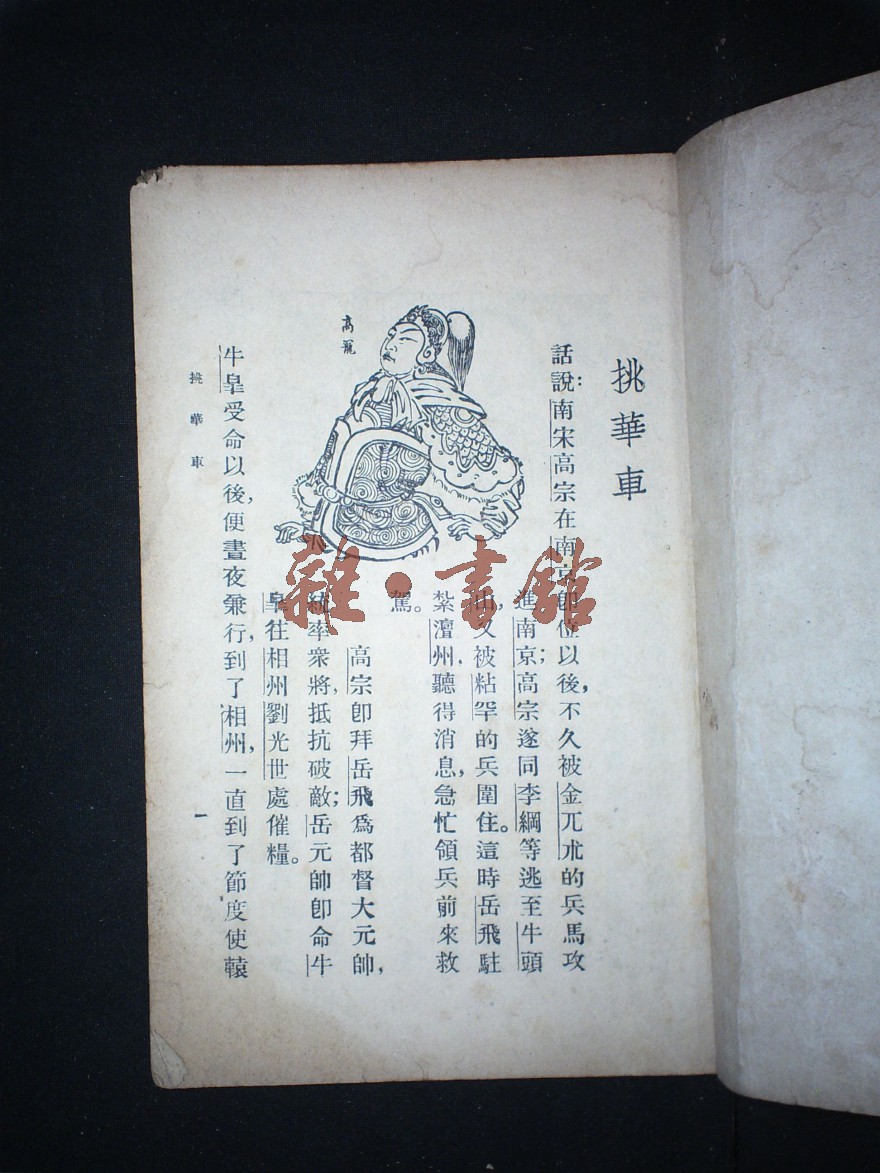 挑華車
話說:南宋高宗在南京卽位以後,不久被金兀朮的兵馬攻
進南京;高宗遂同李綱等逃至牛頭
山,又被粘罕的兵圍住。這時岳飛駐
紮澶州,聽得消息,急忙領兵前來救
駕。
高宗卽拜岳飛爲都督大元帥,
統率衆將,抵抗破敵;岳元帥卽命牛
臯往相州劉光世處催糧。
牛臯受命以後,便晝夜兼行,到了相州,一直到了節度使轅
高寵
挑華車
一
雜·書館